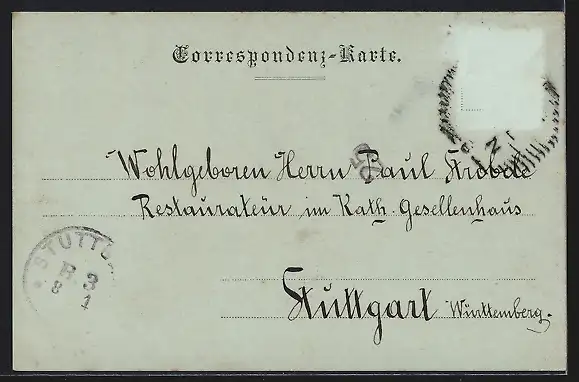 Correspondenz-Karte.
Wohlgeboren Herrn Paul Strobele
Restaurateur im Kath. Gesellenhaus
Stuttgart Württemberg.
STUTTG
B 3
8 1